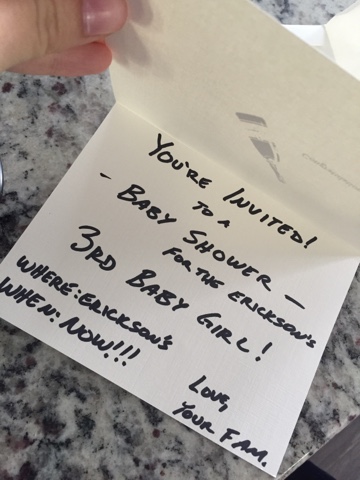 You're Invited!
to a
- Baby Shower -
for the Erickson's
3rd Baby Girl!
Where: Erickson's
When: Now!!!
Love,
Your Fam.